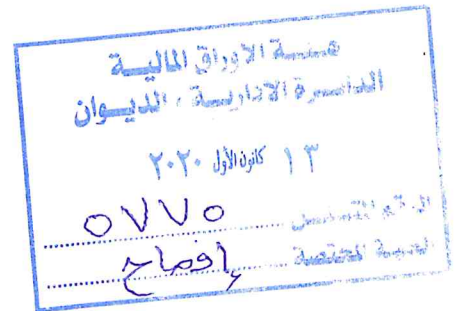 هيئة الاوراق المالية
الدائرة الادارية ، الديوان
١٣ كانون الأول ٢٠٢٠
الرقم المتسلسل ٥٧٧٠
الجهة المختصة إفصاح